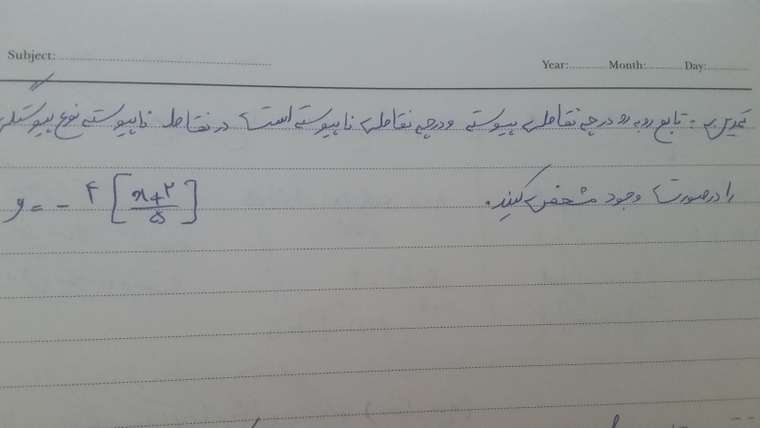 Subject:
Year: Month: Day:
تمرین : تابع روبه رو در چه نقاطی پیوسته و در چه نقاطی ناپیوسته است در نقاط ناپیوسته نوع پیوستگی
را در صورت وجود مشخص کنید.
y = - ۴ [ x+۲ / ۵ ]